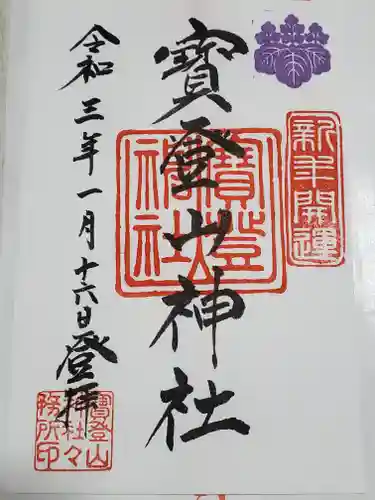 寳登山神社
令和三年一月十六日登拝
新年開運
寳登山神社
寳登山神社々務所印